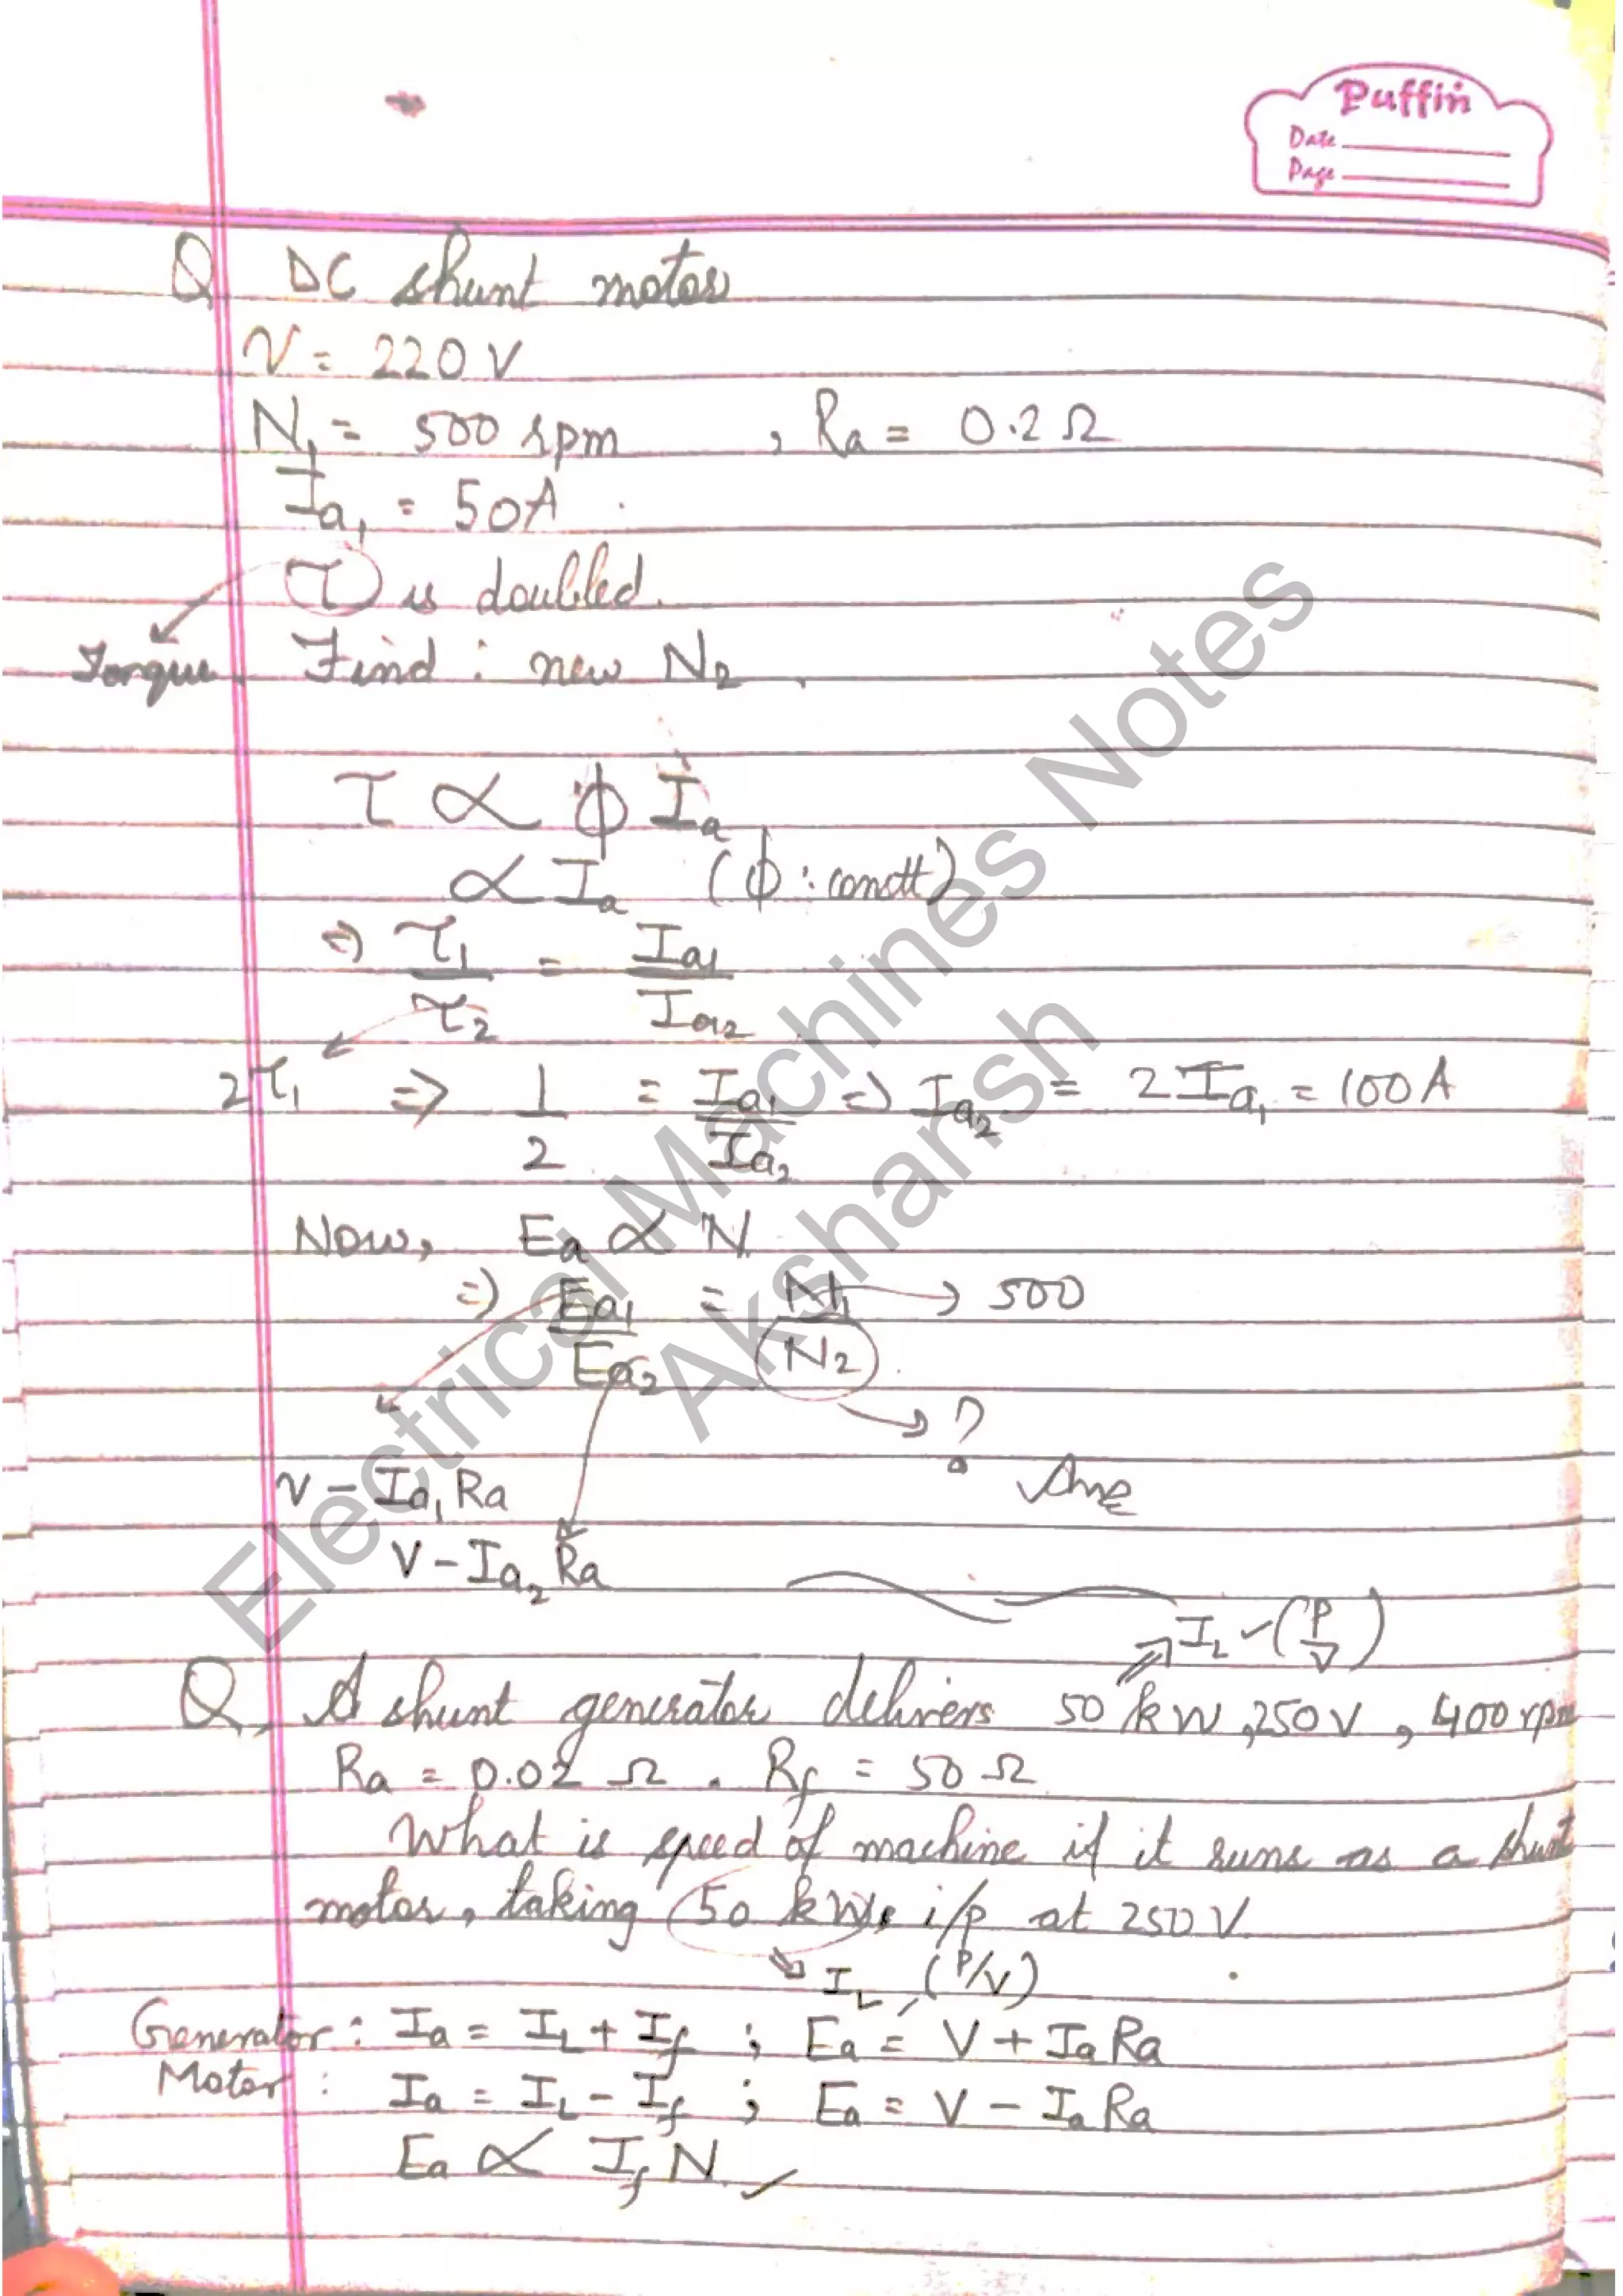 Puffin
Date
Page
Q DC shunt motor
V = 220 V
N₁ = 500 rpm , Ra = 0.2 Ω
Ia₁ = 50A
τ is doubled.
Torque Find : new N₂ .
τ ∝ ϕ Ia
∝ Ia (ϕ : constt)
⇒ τ₁/τ₂ = Ia₁/Ia₂
2τ₁ ⇒ 1/2 = Ia₁/Ia₂ ⇒ Ia₂ = 2 Ia₁ = 100A
Now, Ea ∝ N
⇒ Ea₁/Ea₂ = N₁/N₂ → 500
?
Ans
V - Ia₁ Ra
V - Ia₂ Ra
⇒ IL ✓ (P/V)
Q, A shunt generator delivers 50 kW, 250V, 400 rpm
Ra = 0.02 Ω . Rf = 50 Ω
What is speed of machine if it runs as a shunt
motor, taking 50 kW, i/p at 250 V.
⇒ IL ✓ (P/V)
Generator : Ia = IL + If ; Ea = V + Ia Ra
Motor : Ia = IL - If ; Ea = V - Ia Ra
Ea ∝ If N ✓
Electrical Machines Notes
Akshansh